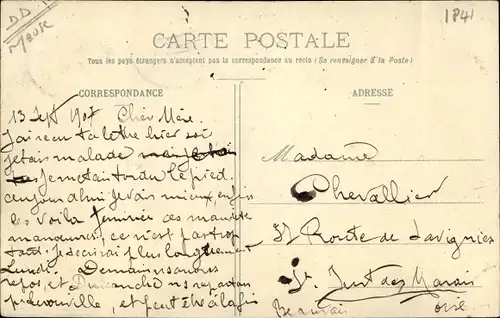 DD
Meuse
1841
CARTE POSTALE
Tous les pays étrangers n'acceptent pas la correspondance au recto (Se renseigner à la Poste)
CORRESPONDANCE
ADRESSE
13 Sept 1907 Cher Mère.
J'ai reçu ta lettre hier soir
j'etais malade
je m'etais tordu le pied.
aujourd'hui je vais mieux, enfin
les voila terminée ces maudite
manoeuvres, ce n'est pas trop
tard, je t'ecrirai plus longuement
Lundi. Demain sommes
repos, et Dimanche nous repartons
et peut être à la fin
Madame
Chevallier
37 Route de Savignies
St Just des Marais
Beauvais Oise